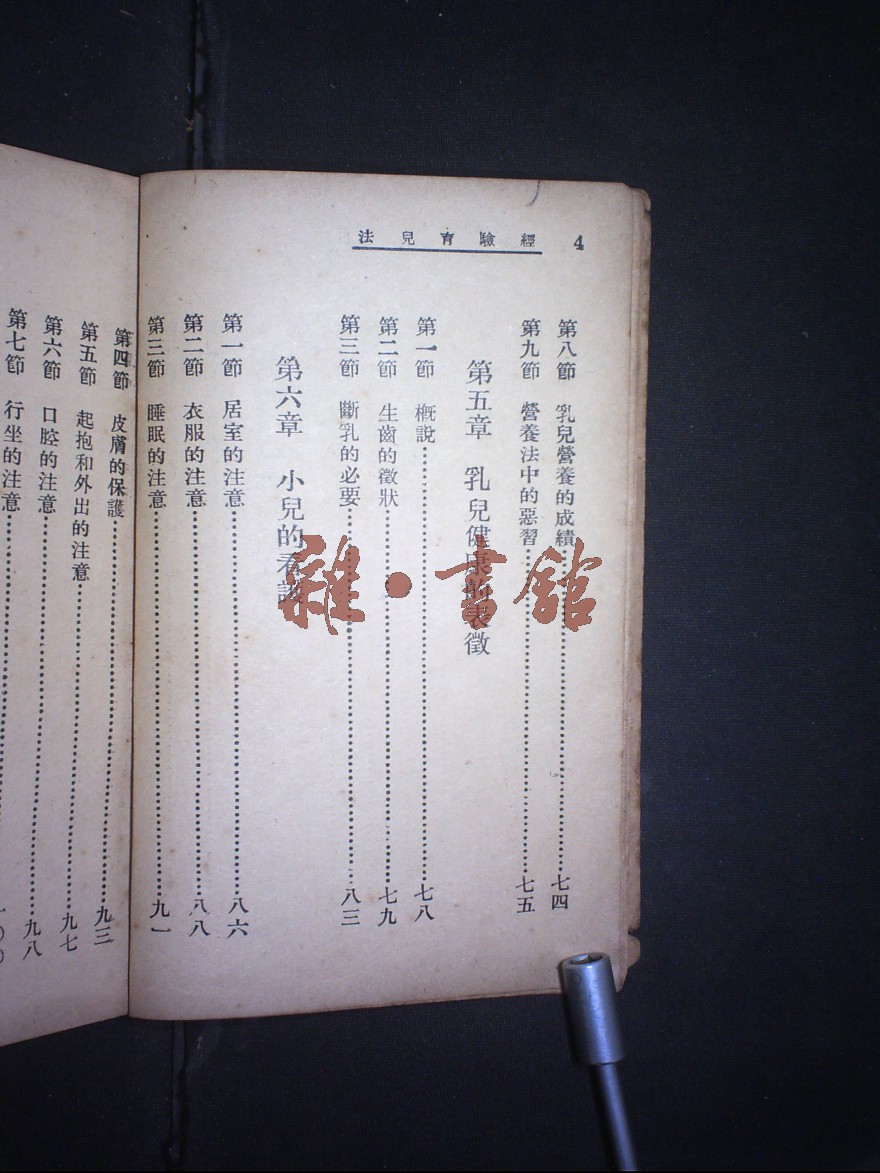 經驗育兒法 4
第八節 乳兒營養的成績……七四
第九節 營養法中的惡習……七五
第五章 乳兒健康的表徵
第一節 概說……七八
第二節 生齒的徵狀……七九
第三節 斷乳的必要……八三
第六章 小兒的看護
第一節 居室的注意……八六
第二節 衣服的注意……八八
第三節 睡眠的注意……九一
第四節 皮膚的保護……九三
第五節 起抱和外出的注意……九七
第六節 口腔的注意……九八
第七節 行坐的注意……一〇〇
雜·書館